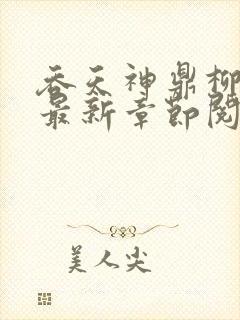 吞天神鼎柳
最新章节阅
美人尖